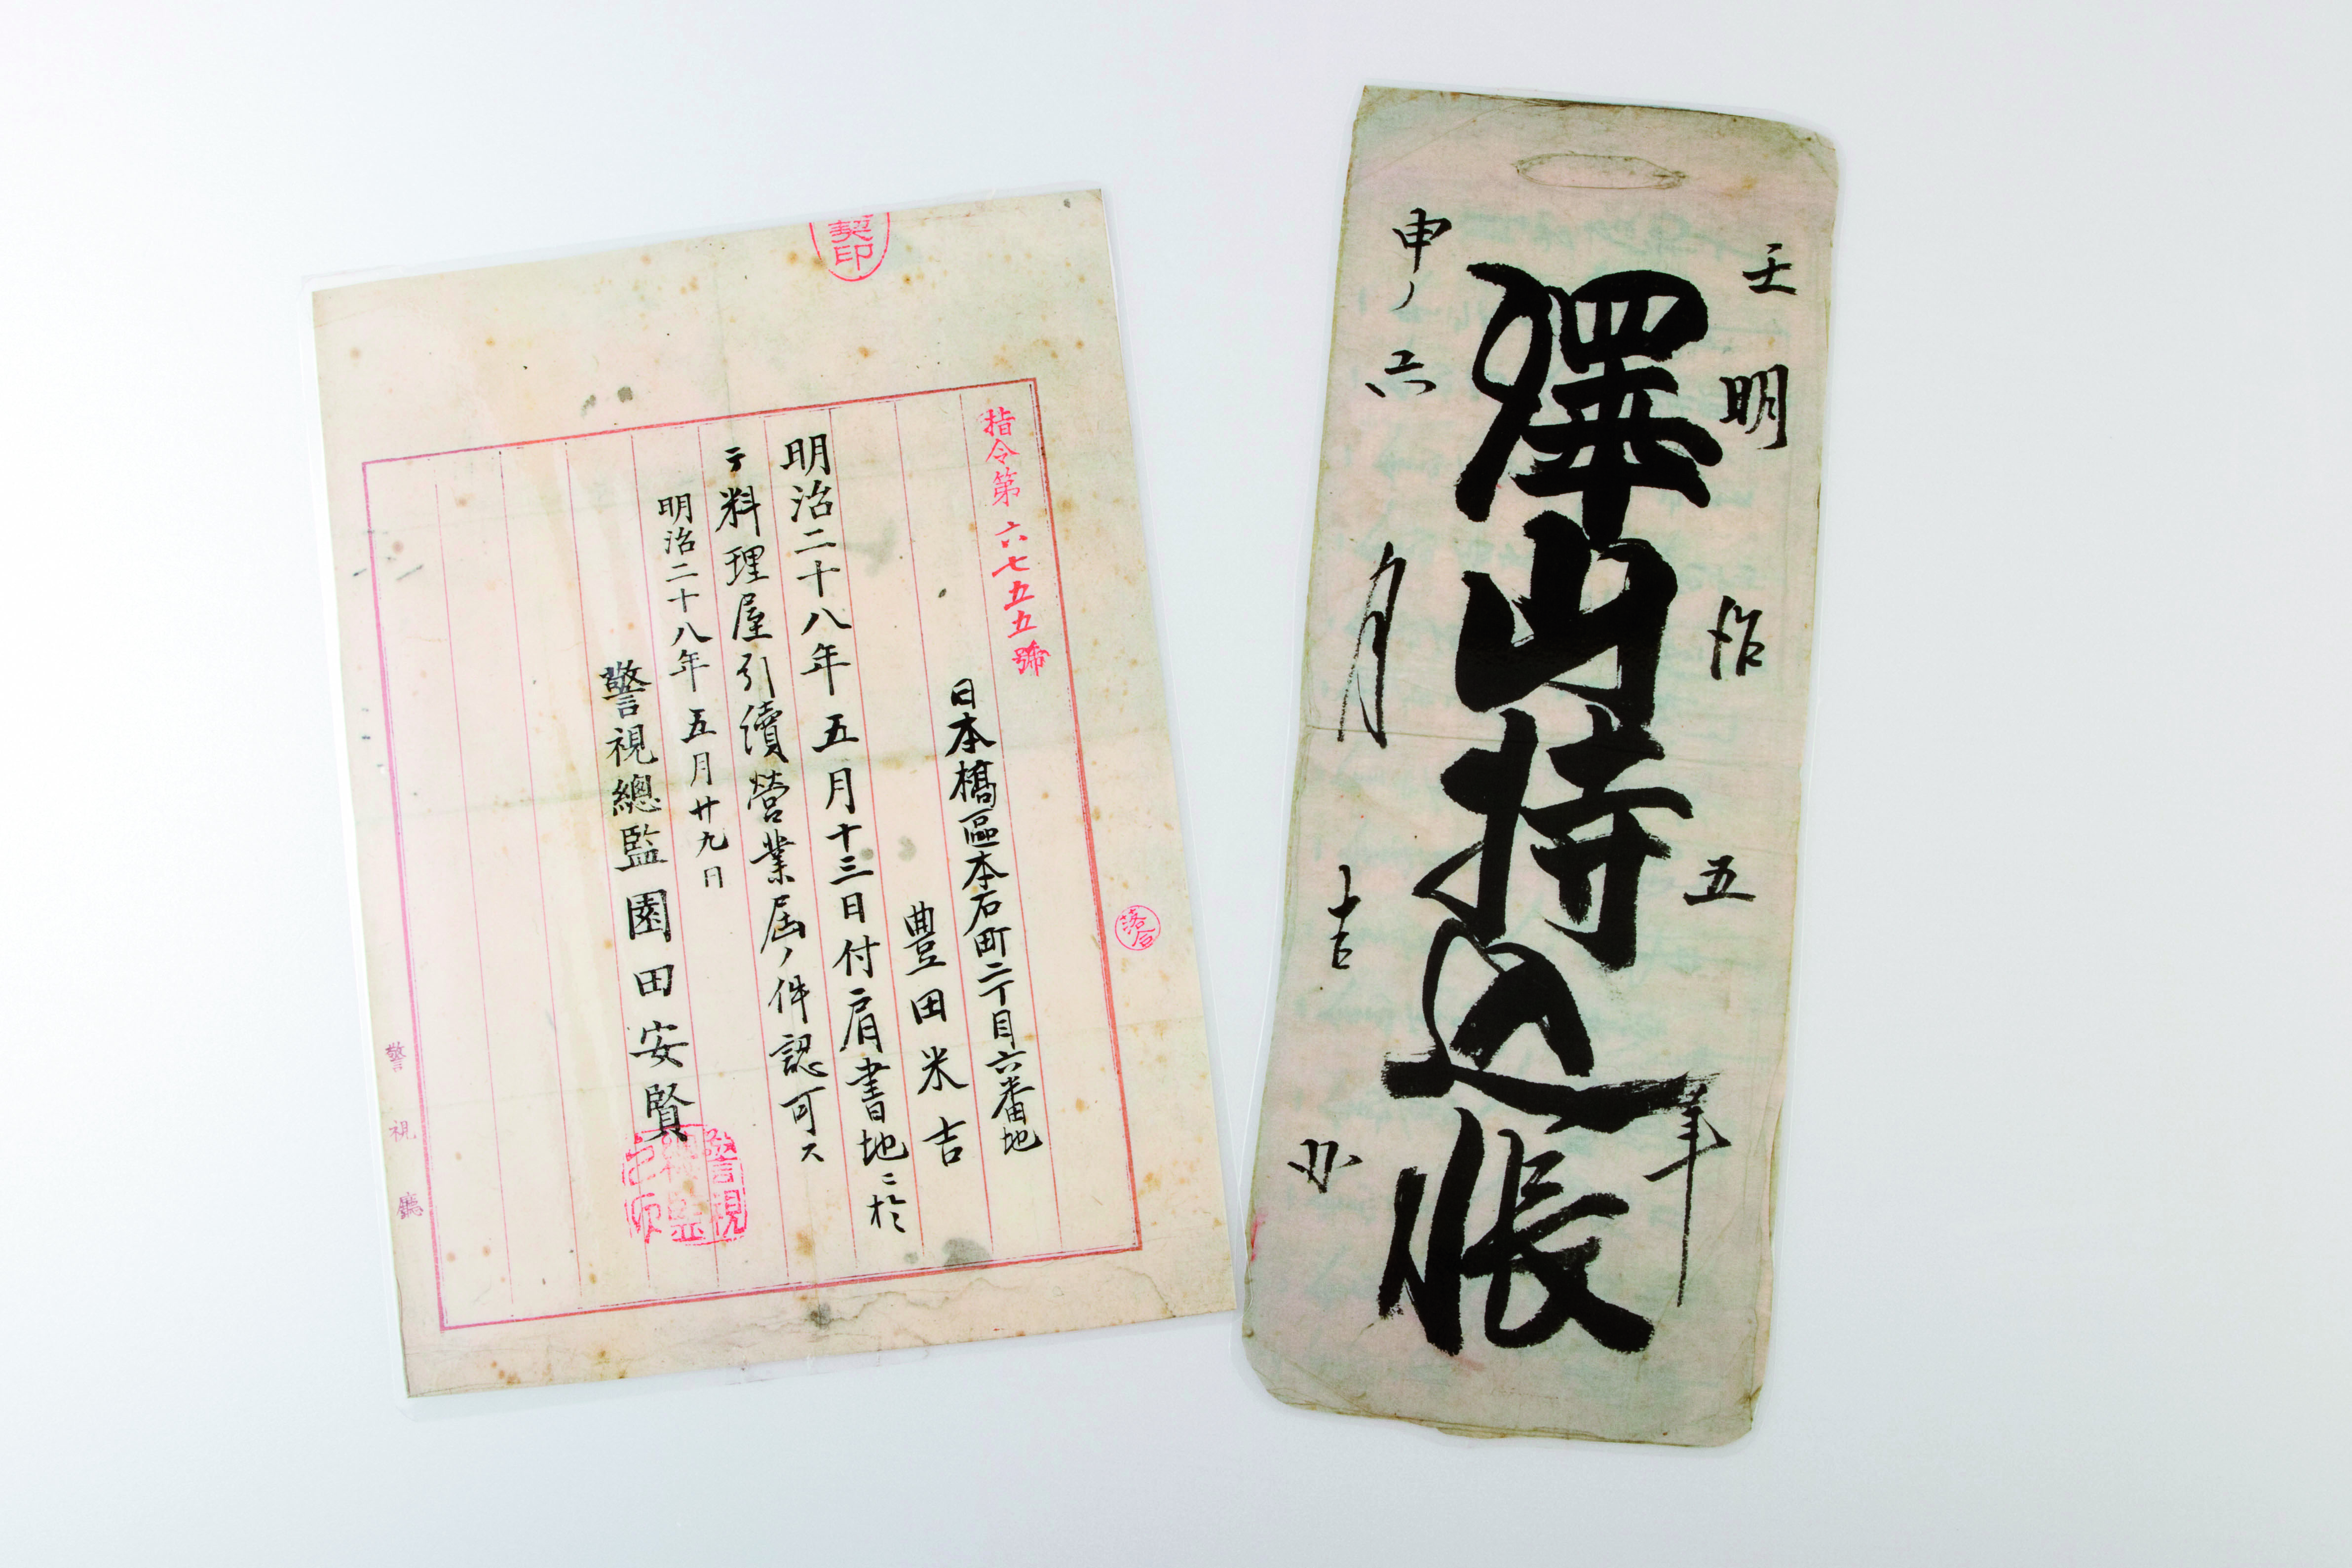 契印
指令第六七五五號
日本橋區本石町二丁目六番地
豊田米吉
明治二十八年五月十三日付肩書地ニ於
テ料理屋引續營業届ノ件認可ス
明治二十八年五月廿九日
警視總監園田安賢
警視總監之印
落合
警視廳
壬明治五年
澤山持込帳
申ノ六月吉日